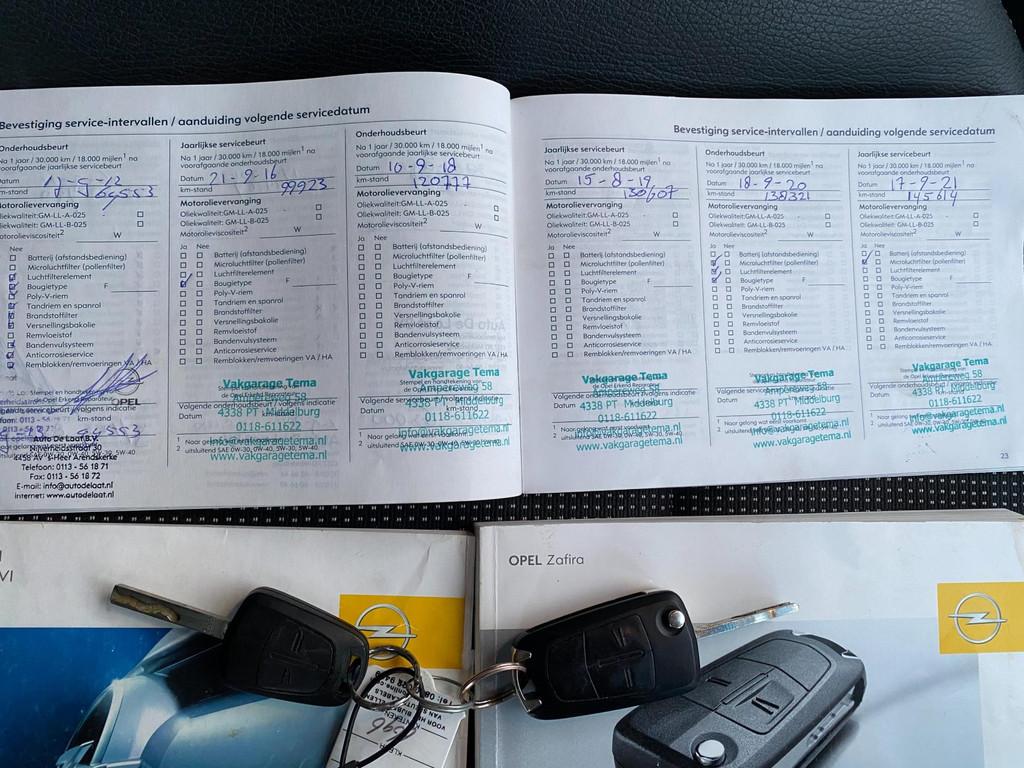 Bevestiging service-intervallen / aanduiding volgende servicedatum
Onderhoudsbeurt
Na 1 jaar / 30.000 km / 18.000 mijlen1 na
voorafgaande jaarlijkse servicebeurt
Datum
km-stand
Motorolievervanging
Oliekwaliteit: GM-LL-A-025
Oliekwaliteit: GM-LL-B-025
Motorolieviscositeit2 W
Nee
Batterij (afstandsbediening)
Microluchtfilter (pollenfilter)
Luchtfilterelement
Bougietype F
Poly-V-riem
Tandriem en spanrol
Brandstoffilter
Versnellingsbakolie
Remvloeistof
Bandenvulsysteem
Anticorrosieservice
Remblokken/remvoeringen VA / HA
Auto De Laat B.V.
Nijverheidsstraat 30
4458 AV 's-Heer Arendskerke
Telefoon: 0113 - 56 18 71
Fax: 0113 - 56 18 72
E-mail: info@autodelaat.nl
internet: www.autodelaat.nl
Jaarlijkse servicebeurt
Na 1 jaar / 30.000 km / 18.000 mijlen1 na
voorafgaande onderhoudsbeurt
Datum 21-9-16
km-stand 99923
Motorolievervanging
Oliekwaliteit: GM-LL-A-025
Oliekwaliteit: GM-LL-B-025
Motorolieviscositeit2 W
Ja Nee
Batterij (afstandsbediening)
Microluchtfilter (pollenfilter)
Luchtfilterelement
Bougietype F
Poly-V-riem
Tandriem en spanrol
Brandstoffilter
Versnellingsbakolie
Remvloeistof
Bandenvulsysteem
Anticorrosieservice
Remblokken/remvoeringen VA / HA
Vakgarage Tema
Ampereweg 58
4338 PT Middelburg
0118-611622
info@vakgaragetema.nl
www.vakgaragetema.nl
Onderhoudsbeurt
Na 1 jaar / 30.000 km / 18.000 mijlen1 na
voorafgaande jaarlijkse servicebeurt
Datum 10-9-18
km-stand 120777
Motorolievervanging
Oliekwaliteit: GM-LL-A-025
Oliekwaliteit: GM-LL-B-025
Motorolieviscositeit2 W
Ja Nee
Batterij (afstandsbediening)
Microluchtfilter (pollenfilter)
Luchtfilterelement
Bougietype F
Poly-V-riem
Tandriem en spanrol
Brandstoffilter
Versnellingsbakolie
Remvloeistof
Bandenvulsysteem
Anticorrosieservice
Remblokken/remvoeringen VA / HA
Vakgarage Tema
Ampereweg 58
4338 PT Middelburg
0118-611622
info@vakgaragetema.nl
www.vakgaragetema.nl
Bevestiging service-intervallen / aanduiding volgende servicedatum
Jaarlijkse servicebeurt
Na 1 jaar / 30.000 km / 18.000 mijlen1 na
voorafgaande onderhoudsbeurt
Datum 15-8-19
km-stand 130607
Motorolievervanging
Oliekwaliteit: GM-LL-A-025
Oliekwaliteit: GM-LL-B-025
Motorolieviscositeit2 W
Ja Nee
Batterij (afstandsbediening)
Microluchtfilter (pollenfilter)
Luchtfilterelement
Bougietype F
Poly-V-riem
Tandriem en spanrol
Brandstoffilter
Versnellingsbakolie
Remvloeistof
Bandenvulsysteem
Anticorrosieservice
Remblokken/remvoeringen VA / HA
Vakgarage Tema
Ampereweg 58
4338 PT Middelburg
0118-611622
info@vakgaragetema.nl
www.vakgaragetema.nl
Onderhoudsbeurt
Na 1 jaar / 30.000 km / 18.000 mijlen1 na
voorafgaande jaarlijkse servicebeurt
Datum 18-9-20
km-stand 138321
Motorolievervanging
Oliekwaliteit: GM-LL-A-025
Oliekwaliteit: GM-LL-B-025
Motorolieviscositeit2 W
Ja Nee
Batterij (afstandsbediening)
Microluchtfilter (pollenfilter)
Luchtfilterelement
Bougietype F
Poly-V-riem
Tandriem en spanrol
Brandstoffilter
Versnellingsbakolie
Remvloeistof
Bandenvulsysteem
Anticorrosieservice
Remblokken/remvoeringen VA / HA
Vakgarage Tema
Ampereweg 58
4338 PT Middelburg
0118-611622
info@vakgaragetema.nl
www.vakgaragetema.nl
Jaarlijkse servicebeurt
Na 1 jaar / 30.000 km / 18.000 mijlen1 na
voorafgaande onderhoudsbeurt
Datum 17-9-21
km-stand 145614
Motorolievervanging
Oliekwaliteit: GM-LL-A-025
Oliekwaliteit: GM-LL-B-025
Motorolieviscositeit2 W
Ja Nee
Batterij (afstandsbediening)
Microluchtfilter (pollenfilter)
Luchtfilterelement
Bougietype F
Poly-V-riem
Tandriem en spanrol
Brandstoffilter
Versnellingsbakolie
Remvloeistof
Bandenvulsysteem
Anticorrosieservice
Remblokken/remvoeringen VA / HA
Vakgarage Tema
Ampereweg 58
4338 PT Middelburg
0118-611622
info@vakgaragetema.nl
www.vakgaragetema.nl
23
OPEL Zafira